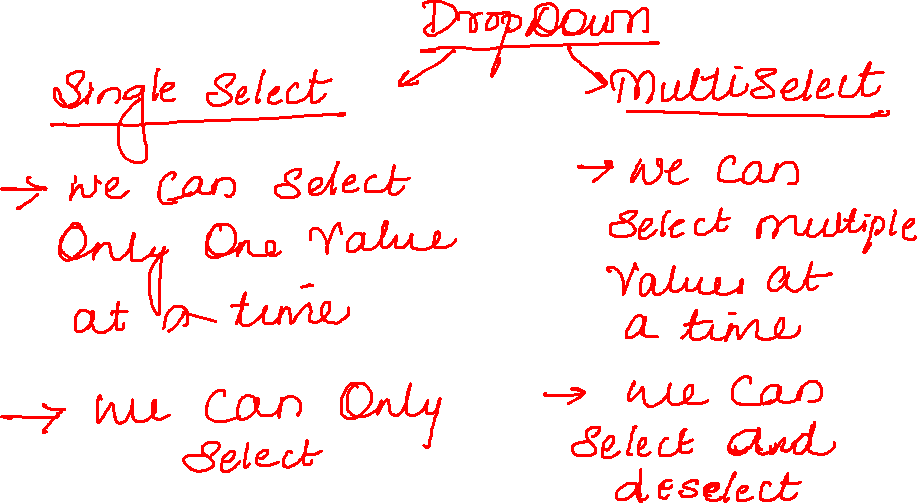 DropDown
Single Select
→ we can select
Only One Value
at a time
→ we can Only
select
MultiSelect
→ we can
select multiple
values at
a time
→ we can
select and
deselect